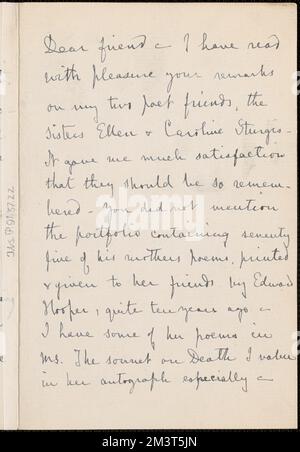 Dear friend - I have read
with pleasure your remarks
on my two poet friends, the
sisters Ellen & Caroline Sturgis -
It gave me much satisfaction
that they should be so remem-
bered - You did not mention
the portfolio containing seventy
five of his mothers poems, printed
& given to her friends by Edward
Hooper, quite ten years ago -
I have some of her poems in
Ms. The sonnet on Death I value
in her autograph especially -
alamy
Image ID: 2M3T5JN
www.alamy.com